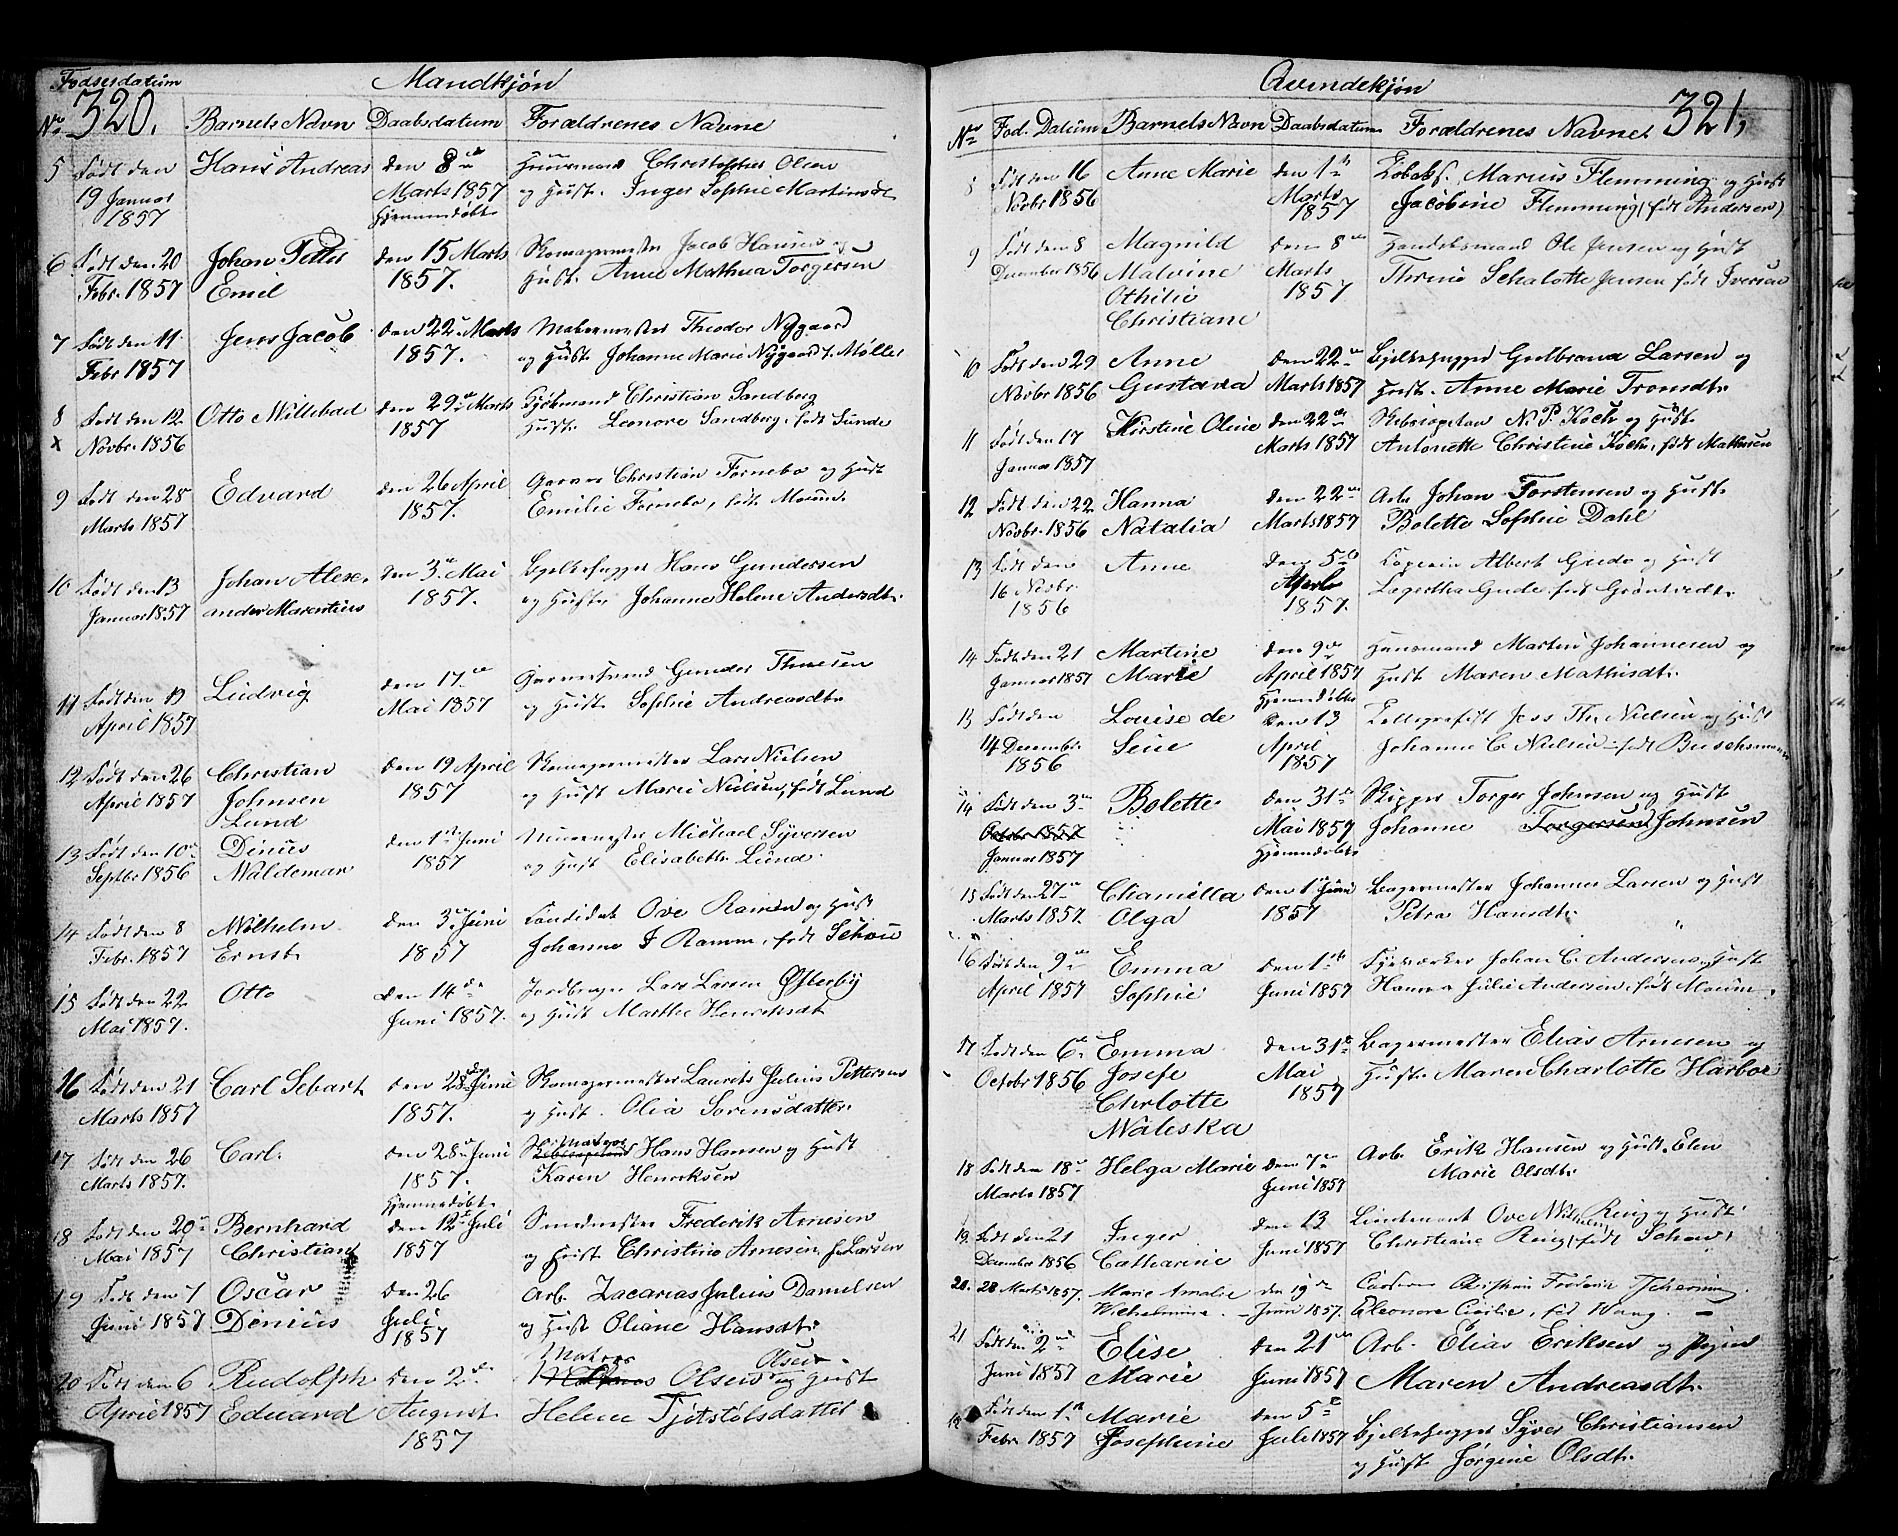 Fødselsdatum Mandkjøn
320.
No Barnets Navn Daabsdatum Forældrenes Navne
5 Født den Hans Andreas den 8de Huusmand Christopher Olsen
19 Januar Marts 1857 og Hust. Inger Sophie Martinsdt.
1857 Hjemmedøbt
6 Født den 20 Johan Petter den 15 Marts Skomagermester Jacob Hansen og
Febr. 1857 Emil 1857. Hust. Anne Mathea Torgersen
7 Født den 11 Jens Jacob den 22 Marts Malermester Theodor Nygaard
Febr 1857 1857. og Hust. Johanne Marie Nygaard f. Møller
8 Født den 12 Otto Willebad den 29 Marts Christian Sandberg
x Novbr. 1856 1857 Hust. Leonore Sandberg, født Sunde
9 Født den 28 Edvard den 26 April Garver Christian Fornebo og Hust
Marts 1857 1857. Emilie Fornebo, født
10 Født den 13 Johan Alex- den 3de Mai Bjelkehugger Hans Gundersen
Januar 1857 ander Marentius 1857. og Hustr Johanne Helene Andersdt.
11 Født den 19 Ludvig den 17de Gunder Thoresen
April 1857 Mai 1857 og Hustr Sophie Andreasdt.
12 Født den 26 Christian den 19 April Skomagermester Lars Nielsen
April 1857 Johnsen 1857 og Hust Marie Nielsen, født Lund
Lund
13 Født den 10de Dinius den 1ste Juni Muurmester Michael Syversen
Septbr 1856 Waldemar 1857 og Hust Elisabeth Lund.
14 Født den 8 Wilhelm den 3de Juni Candidat Ove Ramm og Hust
Febr. 1857 Ernst 1857 Johanne F Ramm, født Schou
15 Født den 22 Otto Den 14de Jordbruger Lars Larsen Østerby
Mai 1857. Juni 1857. og Hust Marthe Henriksdt
16 Født den 21 Carl Sebart den 28de Juni Skomagermester Laurits Julius Pettersen
Marts 1857 1857. og Hust. Olea Sørensdatter.
17 Født den 26 Carl. den 28de Juni Matros Hans Hansen og Hust
Marts 1857. 1857. Karen Henriksen
Hjemmedøbt
18 Født den 20de Bernhard den 12te Juli Smedmester Frederik Arnesen
Mai 1857 Christian 1857 og Hust Christine Arnesen, f. Larsen
19 Født den 7 Oscar den 26 Arb. Zacarias Julius Danielsen
Juni 1857 Dinius Juli og Hust Oliane Hansdt.
1857
20 Født den 6 Rudolph den 2de Matros Olsen og Hust
April 1857 Edvard August Helene Tjøstølsdatter
1857
Qvindekjøn
321,
No Fød. Datum Barnets Navn Daabsdatum Forældrenes Navne
8 Født den 16 Anne Marie den 1ste Marius Flemming og Hust
Novbr 1856 Marts Jacobine Flemming (født Andersen)
1857
9 Født den 8 Magnild den 8de Handelsmand Ole Jensen og Hust
December 1856 Malvine Marts Thrine Schalotte Jensen født Iversen
Othilie 1857
Christiane
10 Født den 29 Anne den 22de Bjelkehugger Gulbrand Larsen og
Novbr 1856 Gustava Marts 1857 Hust. Anne Marie Tronsdt.
11 Født den 17 Kirstine Oline den 22de Skibscapitan N. P. Koch og Hust
Januar 1857 Marts 1857 Antonette Christine Koch, født Mathesen
12 Født den 22 Hanna den 22de Arb. Johan Torstensen og Hust.
Novbr. 1856 Natalia Marts 1857 Bolette Sophie Dahl
13 Født den Anne den 5te Captain Albert Gude og Hust
16 Novbr. April Lagertha Gude født Grøntvedt.
1856 1857.
14 Født den 21 Martine den 9de Huusmand Martin Johannesen og
Januar 1857 Marie April 1857 Hust Maren Mathisdt.
Hjemmedøbt
13 Født den Louise de den 13 Telegrafist Jess Th. Nielsen og Hust
14 Decembr. Seue April Johanne C. Nielsen født Buschsmann
1856 1857
14 Født den 3de Bolette den 31te Skipper Torger Johnsen og Hust
Octobr 1857 Mai 1857 Johanne Torgersen Johnsen
Januar 1857 Hjemmedøbt
15 Født den 27de Chamilla den 1ste Juni Bagermester Johannes Larsen og Hust
Marts 1857. Olga 1857 Petra Hansdt.
16 Født den 9de Emma den 1ste Johan C. Andersen og Hust
April 1857 Sophie Juni 1857 Hanna Julie Andersen, født
17 Født den 6te Emma den 31te Bagermester Elias Arnesen og
Octobr 1856 Josefe Mai Hust. Maren Charlotte Harboe
Chrlotte 1857
Waleska
18 Født den 18de Helga Marie den 7de Arb. Erik Hansen og Hust. Elen
Marts 1857 Juni 1857 Marie Olsdt.
19 Født den 21 Inger den 13 Lieutenant Ove Wilhelm Ring og Hust.
December 1856 Catharine Juni 1857 Christiane Ring, født Schou.
20. 28 Marts 1857. Marie Amalie den 19de Christian Frederik Tschering.
Wilhelmine. Juni 1857. Eleonora Cecilie, født Wang. —
21 Født den 2den Elise den 21de Arb. Elias Eriksen og Pigen
Juni 1857 Marie Juni 1857 Maren Andreasdt.
Født den 1ste Marie den 5te Bjelkehugger Syver Christiansen
Febr 1857 Josephine Juli 1857 og Hust. Jørgine Olsdt.